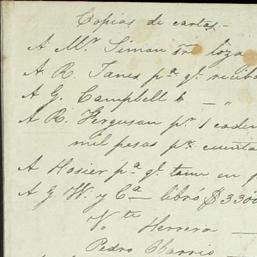 Copias de cartas.-
A Mr. Simon tr. loza
A R. Janes pa. qe. reciba
A G. Campbell & — "
A R. Ferguson pr. 1 caden
mil pesos pr. cuenta
A Hosier pa. qe. tome en p
A G W. y Ca — libró $ 3300
Vte Herrera —
Pedro Barrio —